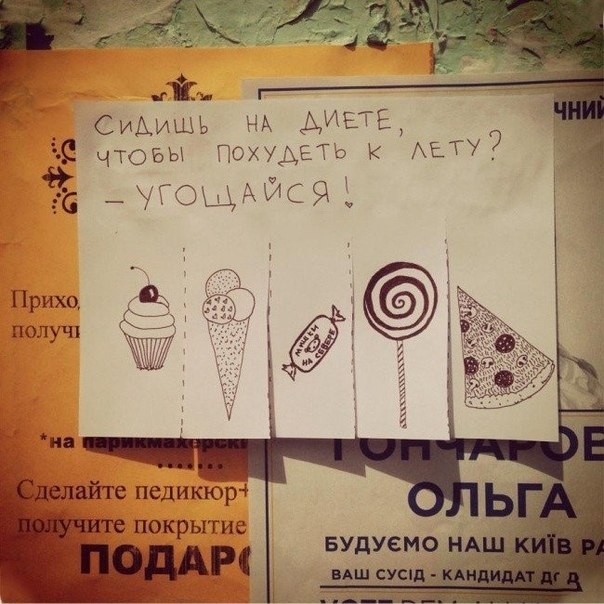 СИДИШЬ НА ДИЕТЕ,
ЧТОБЫ ПОХУДЕТЬ К ЛЕТУ?
– УГОЩАЙСЯ!
МИШКИ
НА СЕВЕРЕ
*на парикмахерск
Сделайте педикюр+
получите покрытие
ПОДАР
ЧНИЙ
ГОНЧАРОВ
ОЛЬГА
БУДУЄМО НАШ КИЇВ РА
ВАШ СУСІД - КАНДИДАТ